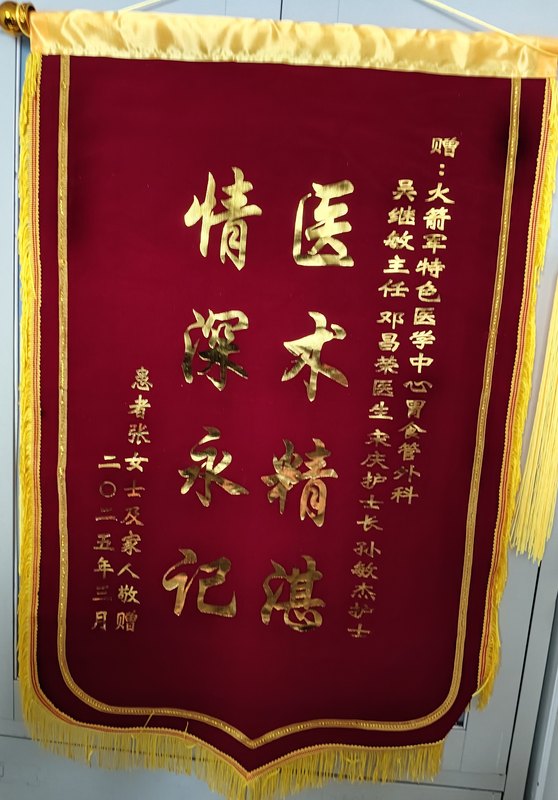 赠：火箭军特色医学中心胃食管外科
吴继敏主任邓昌荣医生宋庆护士长孙敏杰护士
医术精湛
情深永记
患者张女士及家人敬赠
二〇二五年三月